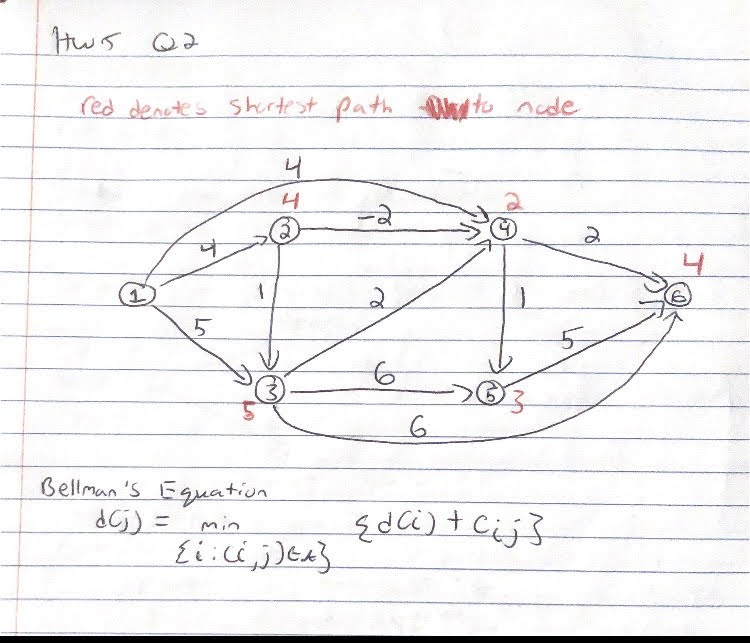 HW5 Q2
red denotes shortest path to node
4
4 2
2 -2 4 2
4 4
1 1 2 1 6
5 5
6
3 5
5 3
6
Bellman's Equation
d(j) = min {d(i) + cij}
{i:(i,j)∈A}